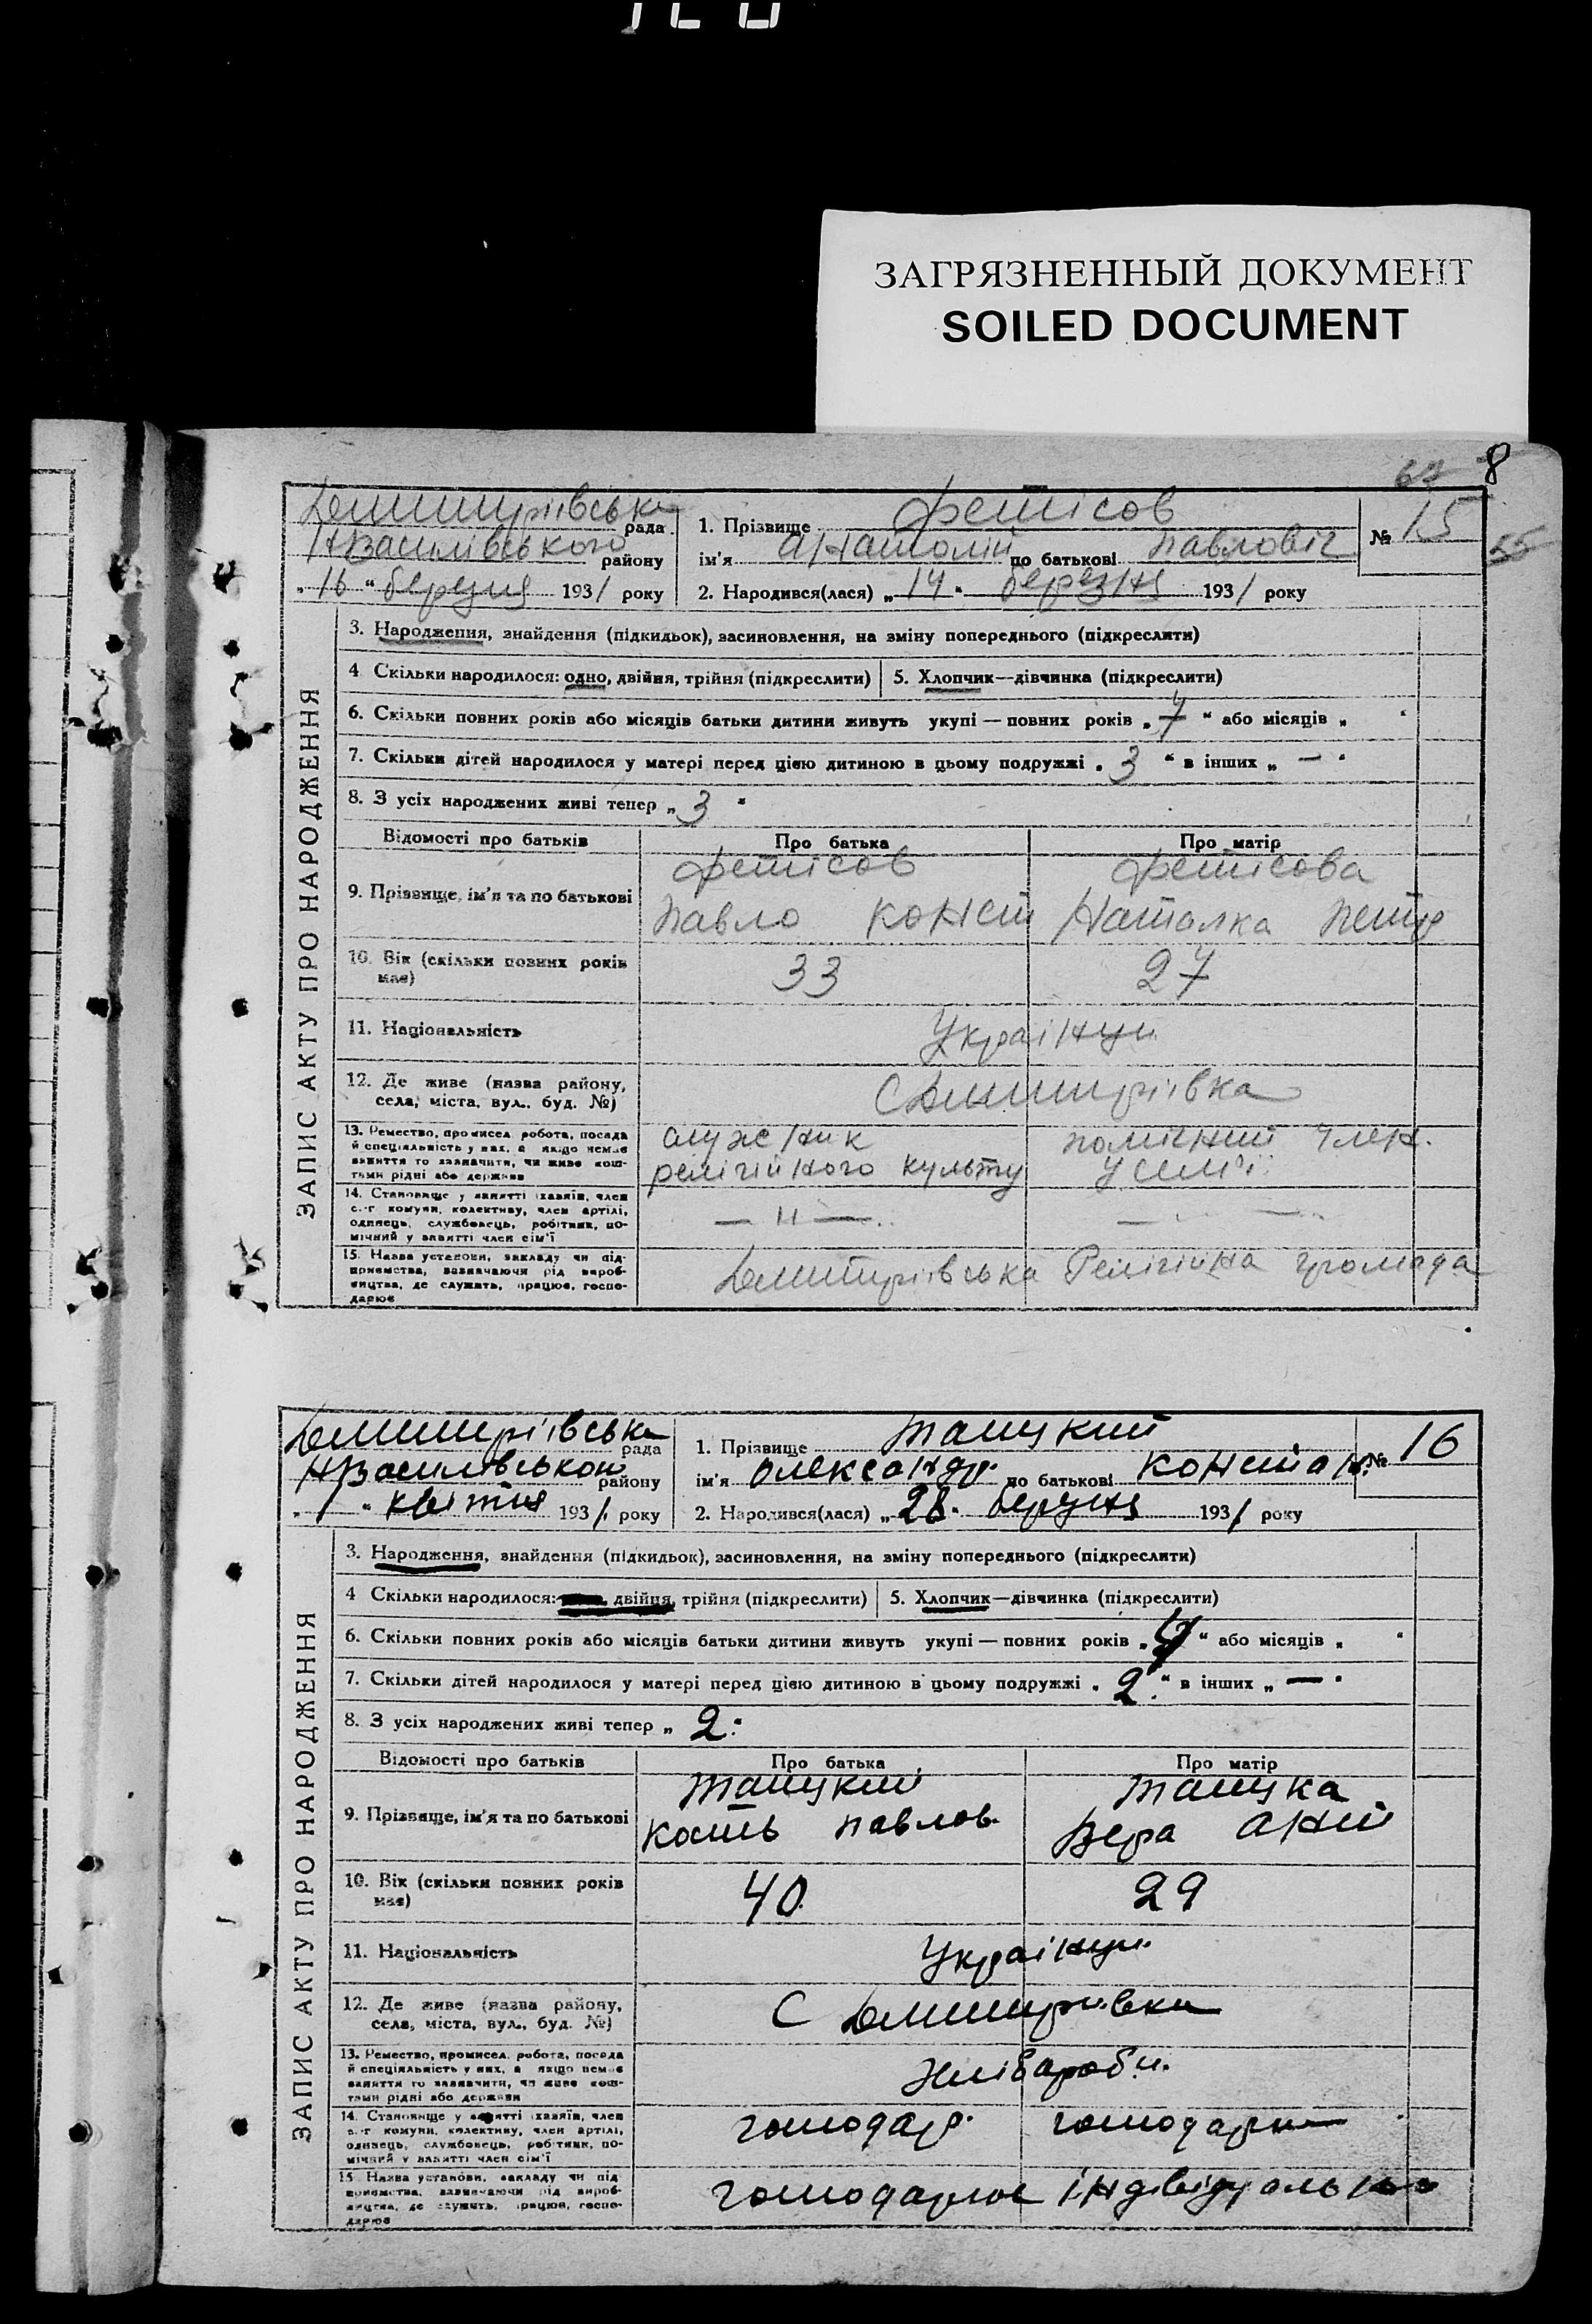 ЗАГРЯЗНЕННЫЙ ДОКУМЕНТ
SOILED DOCUMENT
67 8
55
ЗАПИС АКТУ ПРО НАРОДЖЕННЯ
Дмитріївська рада
НВасилівського району
„16“ березня 1931 року
1. Прізвище Фетісов
ім'я Анатолій по батькові Павловіч
№ 15
2. Народився(лася) „14“ березня 1931 року
3. Народження, знайдення (підкидьок), засиновлення, на зміну попереднього (підкреслити)
4 Скільки народилося: одно, двійня, трійня (підкреслити) 5. Хлопчик—дівчинка (підкреслити)
6. Скільки повних років або місяців батьки дитини живуть укупі — повних років „7“ або місяців „ “
7. Скільки дітей народилося у матері перед цією дитиною в цьому подружжі „3“ в інших „—“
8. З усіх народжених живі тепер „3“
Відомості про батьків Про батька Про матір
9. Прізвище, ім'я та по батькові
Фетісов Фетісова
Павло Конст Наталка Петр
10. Вік (скільки повних років має) 33 27
11. Національність Українци
12. Де живе (назва району, села, міста, вул., буд. №) С Дмитріівка
13. Ремество, промисел, робота, посада й спеціяльність у них, а якщо немає заняття то зазначити, чи живе коштами рідні або держави
служник помічний член.
релігійного культу у сем'ї
14. Становище у занятті (хазяїн, член с.-г комуни, колективу, член артілі, одинець, службовець, робітник, помічний у занятті член сім'ї — 〃 — —
15. Назва установи, закладу чи підприємства, зазначаючи рід виробництва, де служить, працює, господарює Дмитріівська Релігійна громада
ЗАПИС АКТУ ПРО НАРОДЖЕННЯ
Дмитріївська рада
НВасилівськой району
„1“ квітня 1931 року
1. Прізвище Тапуский
ім'я Олександр. по батькові Констан.
№ 16
2. Народився(лася) „28“ березня 1931 року
3. Народження, знайдення (підкидьок), засиновлення, на зміну попереднього (підкреслити)
4 Скільки народилося: двійня, трійня (підкреслити) 5. Хлопчик—дівчинка (підкреслити)
6. Скільки повних років або місяців батьки дитини живуть укупі — повних років „ “ або місяців „ “
7. Скільки дітей народилося у матері перед цією дитиною в цьому подружжі „2“ в інших „—“
8. З усіх народжених живі тепер „2“
Відомості про батьків Про батька Про матір
9. Прізвище, ім'я та по батькові
Кость Павлов. Вера Ант
10. Вік (скільки повних років має) 40 29
11. Національність Українци
12. Де живе (назва району, села, міста, вул., буд. №) С Дмитрівка
13. Ремество, промисел, робота, посада й спеціяльність у них, а якщо немає заняття то зазначити, чи живе коштами рідні або держави Хлібароби.
14. Становище у занятті (хазяїн, член с.-г комуни, колективу, член артілі, одинець, службовець, робітник, помічний у занятті член сім'ї господар. господарка
15 Назва установи, закладу чи підприємства, зазначаючи рід виробництва, де служить, працює, господарює господарює індівідуально